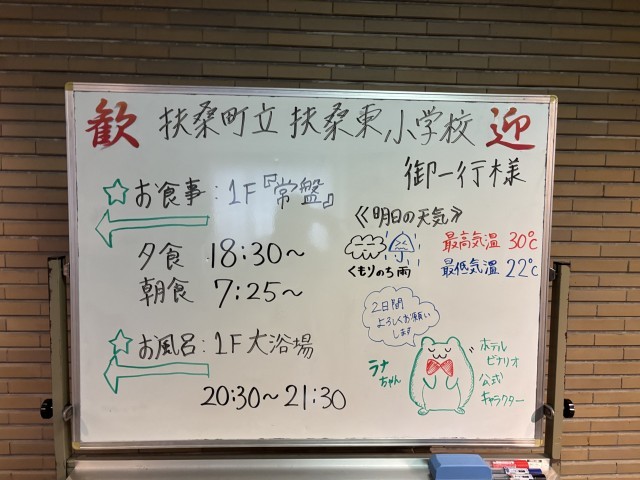 歓 扶桑町立 扶桑東小学校 迎
御一行様
☆お食事：1F『常盤』
夕食 18:30〜
朝食 7:25〜
☆お風呂：1F大浴場
20:30〜21:30
《明日の天気》
くもりのち雨
最高気温 30℃
最低気温 22℃
2日間
よろしくお願い
します
ラナ
ちゃん
ホテル
ビナリオ
公式
キャラクター